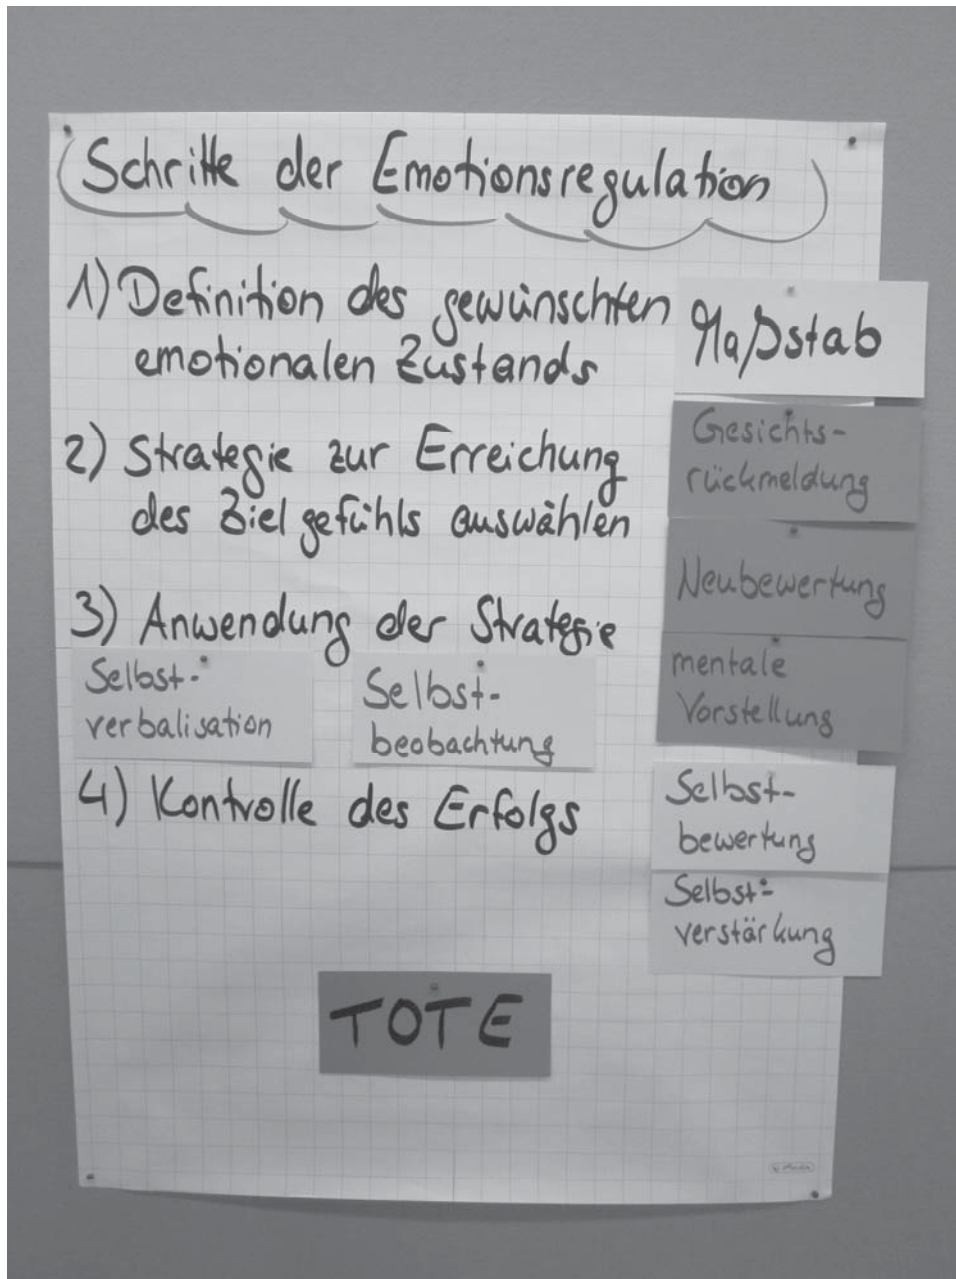 Schritte der Emotionsregulation
1) Definition des gewünschten
emotionalen Zustands
Maßstab
2) Strategie zur Erreichung
des Zielgefühls auswählen
Gesichts-
rückmeldung
Neubewertung
mentale
Vorstellung
3) Anwendung der Strategie
Selbst-
verbalisation
Selbst-
beobachtung
4) Kontrolle des Erfolgs
Selbst-
bewertung
Selbst-
verstärkung
TOTE